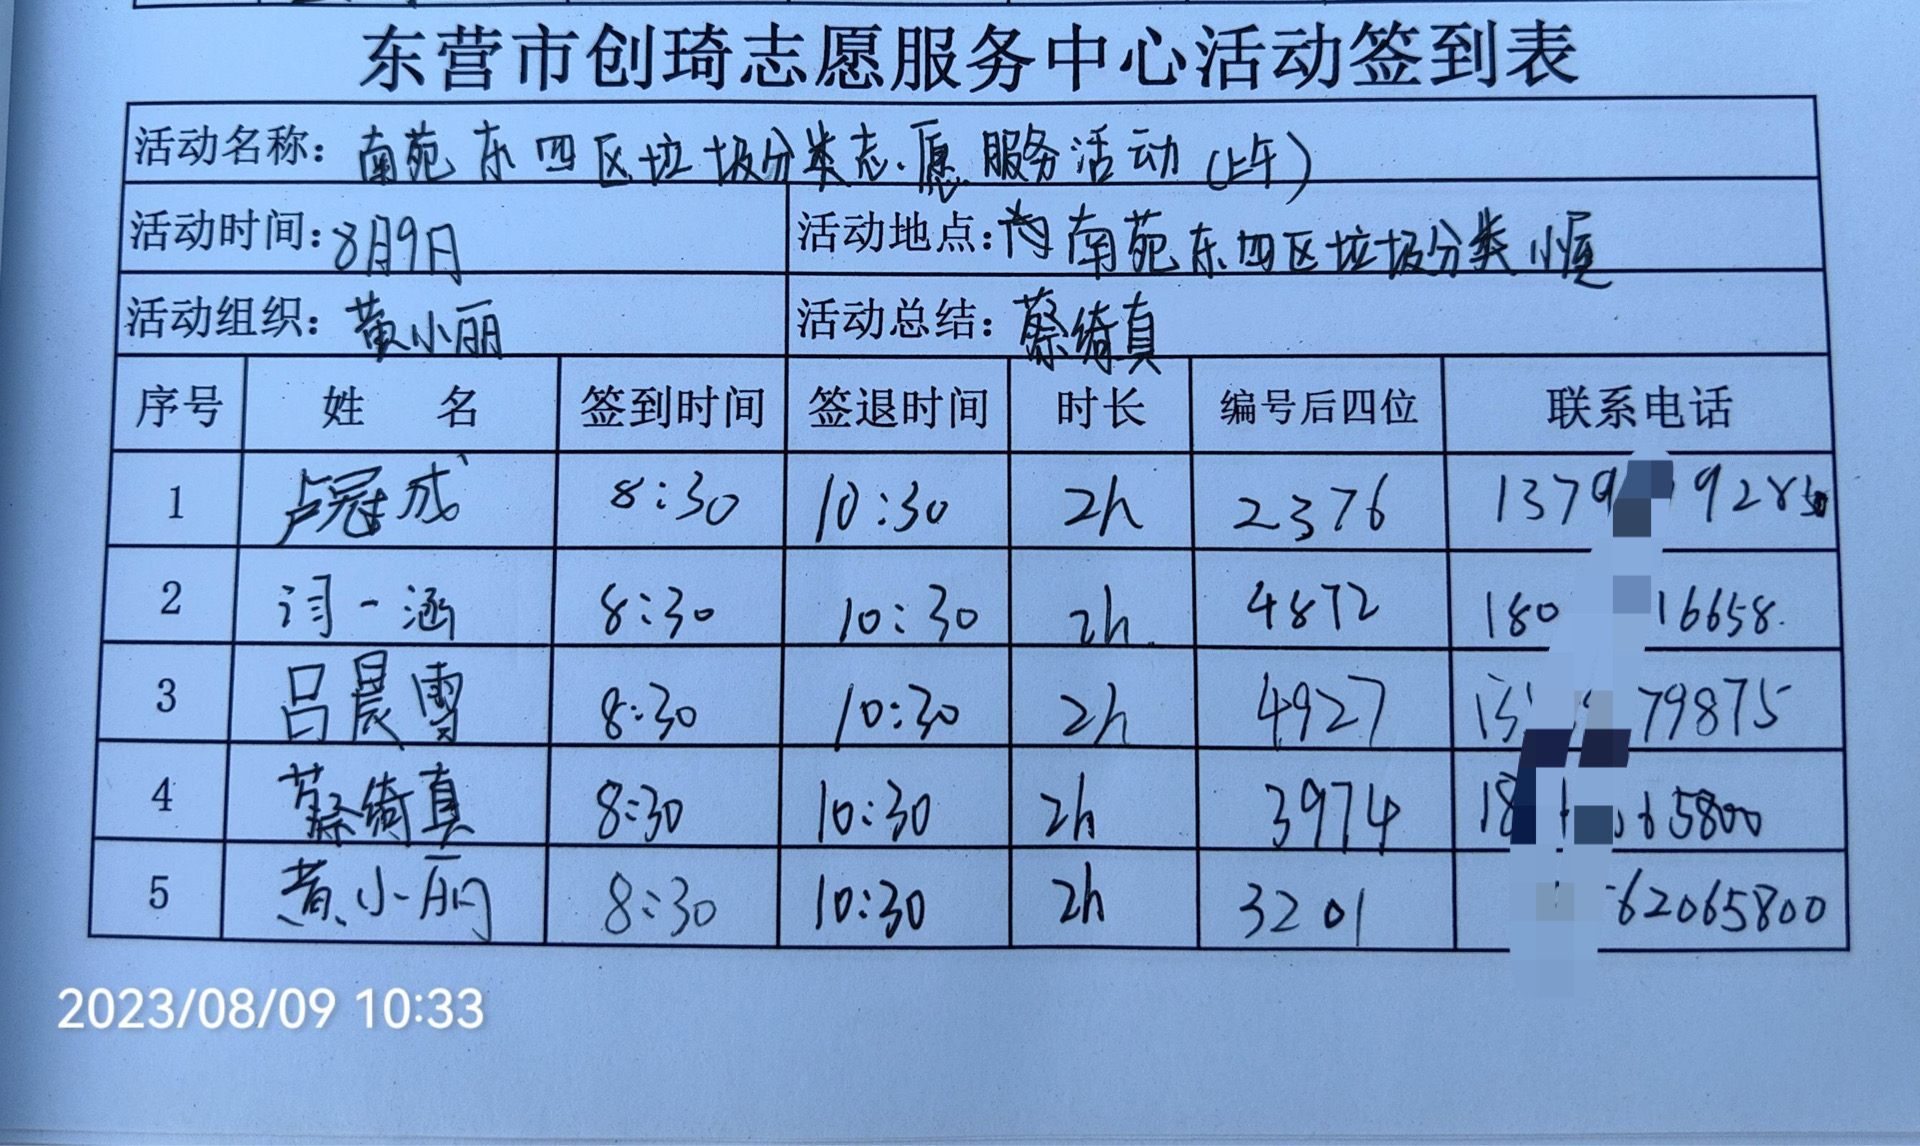 东营市创琦志愿服务中心活动签到表
活动名称: 南苑东四区垃圾分类志愿服务活动(上午)
活动时间: 8月9日 活动地点: 南苑东四区垃圾分类小屋
活动组织: 黄小丽 活动总结: 蔡绮真
序号 姓 名 签到时间 签退时间 时长 编号后四位 联系电话
1 卢冠成 8:30 10:30 2h 2376 1379 928
2 一涵 8:30 10:30 2h 4872 180 16658
3 吕晨雪 8:30 10:30 2h 4927 79875
4 蔡绮真 8:30 10:30 2h 3974 18 65800
5 黄小丽 8:30 10:30 2h 3201 62065800
2023/08/09 10:33